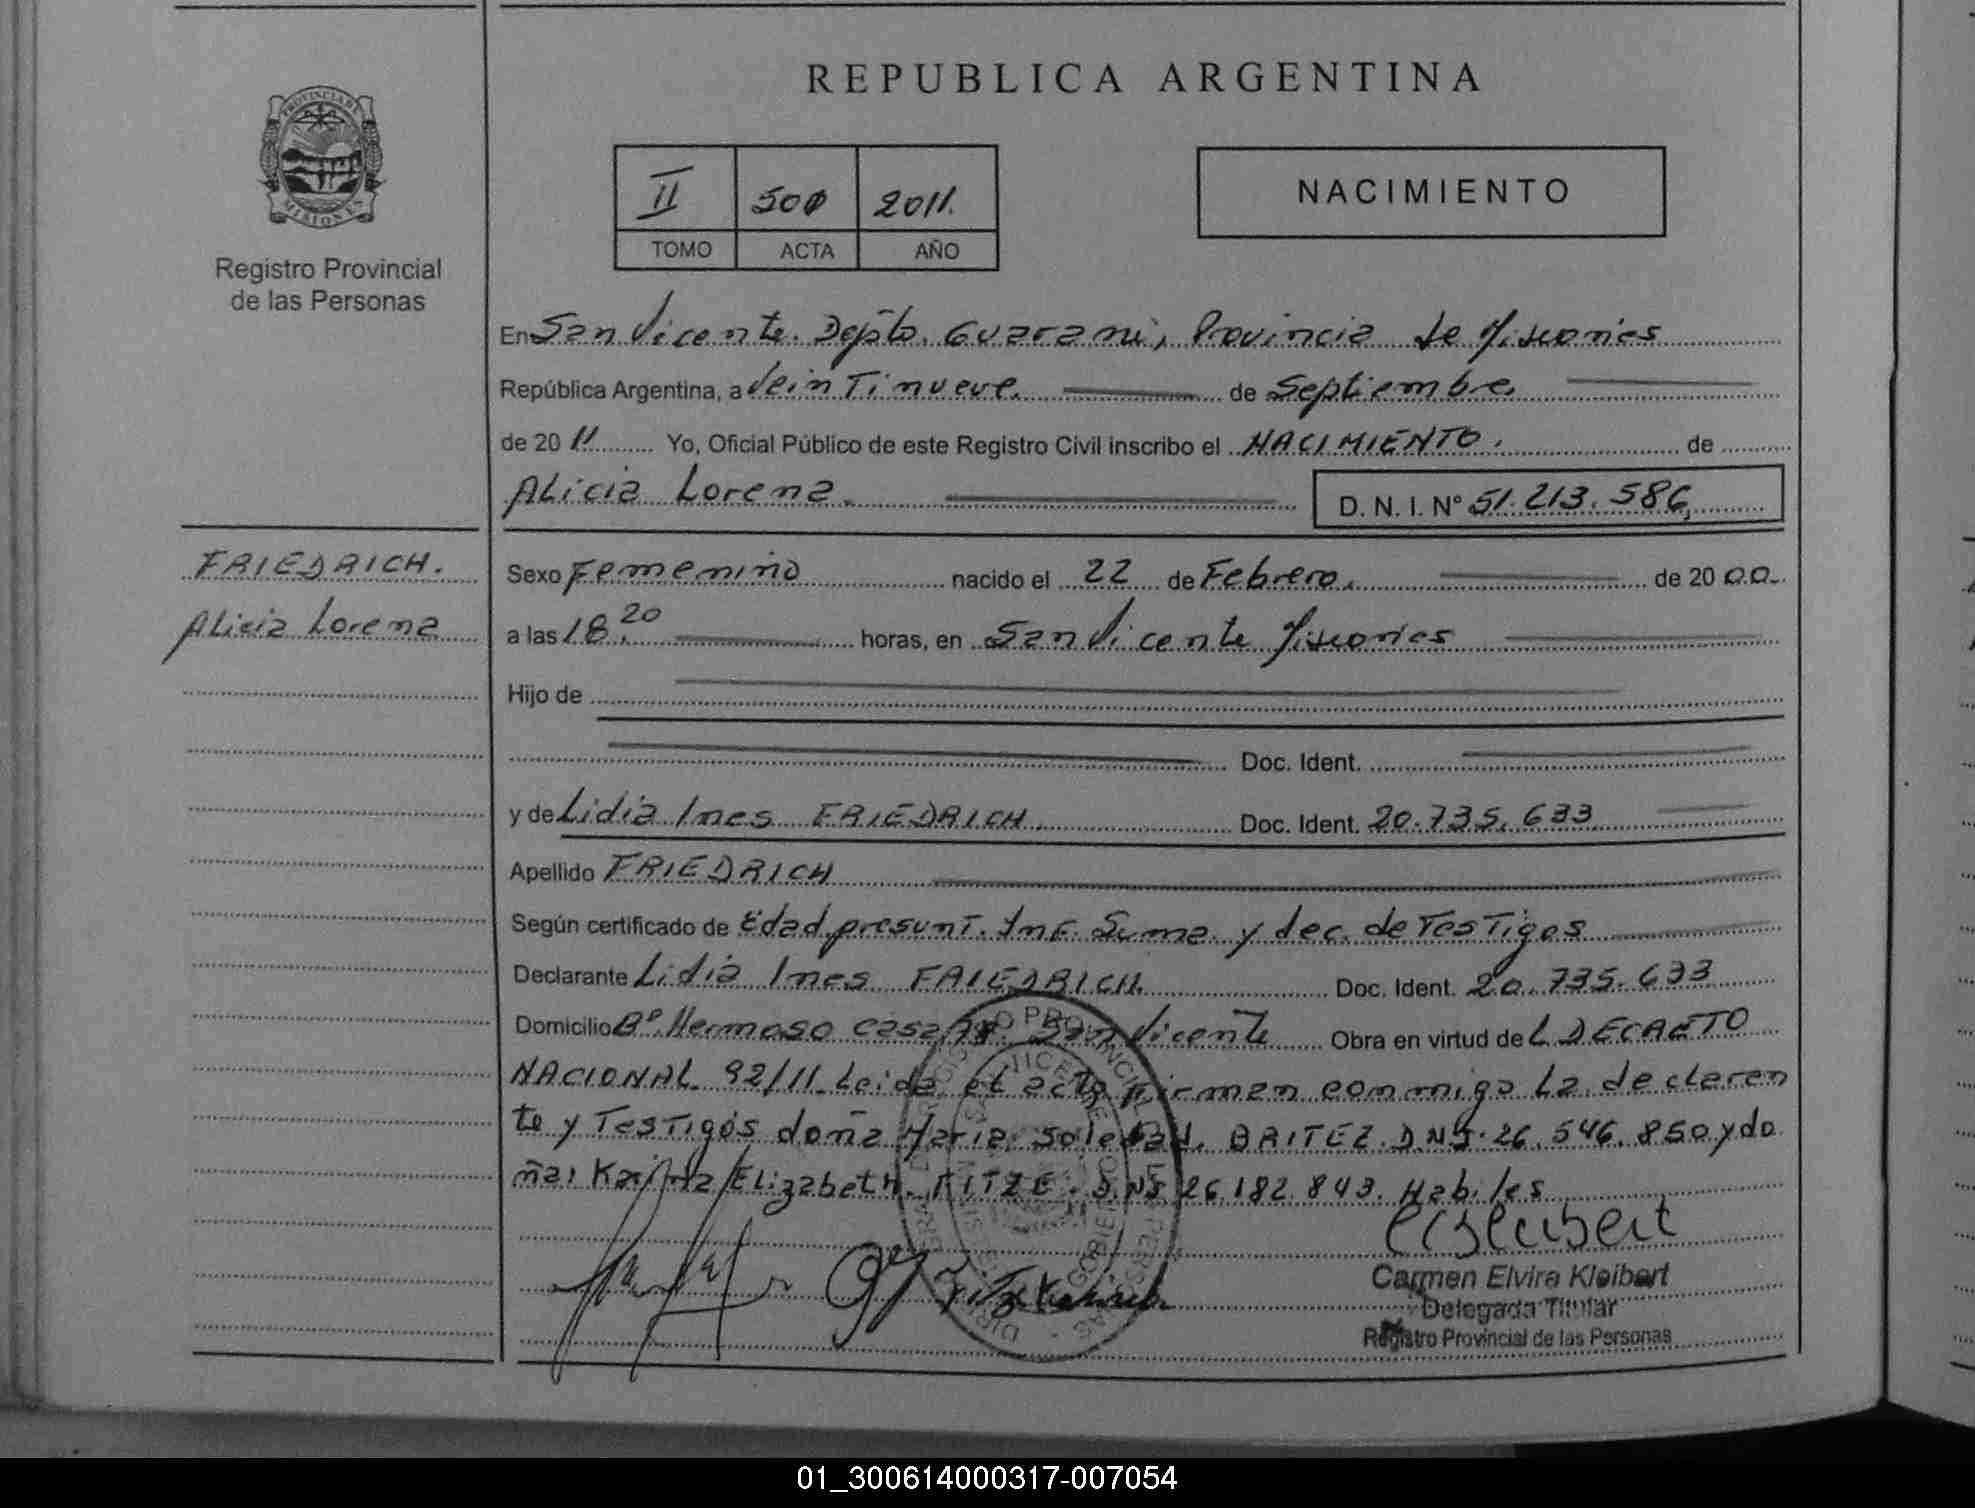 REPUBLICA ARGENTINA
PROVINCIA DE
MISIONES
Registro Provincial
de las Personas
II 500 2011.
TOMO ACTA AÑO
NACIMIENTO
En San Vicente. Depto. Guarani, Provincia de Misiones
República Argentina, a Veintinueve. de Septiembre.
de 2011 Yo, Oficial Público de este Registro Civil inscribo el NACIMIENTO. de
Alicia Lorena. D. N. I. Nº 51.213.586,
FRIEDRICH.
Alicia Lorena
Sexo Femenino nacido el 22 de Febrero. de 2000.
a las 18.20 horas, en San Vicente Misiones
Hijo de
Doc. Ident.
y de Lidia Ines FRIEDRICH. Doc. Ident. 20.735.633
Apellido FRIEDRICH
Según certificado de Edad presunt. Inf. Suma. y dec. de Testigos
Declarante Lidia Ines FRIEDRICH. Doc. Ident. 20.735.633
Domicilio Bº Hermoso casa San Vicente Obra en virtud de L DECRETO
NACIONAL 92/11 Leida el acta firman conmigo La declaran
te y Testigos doña Maria Soledad. BRITEZ. D.N.I. 26.546.850 y do
ña: Karina Elizabeth. FITZE. D.NI 26.182.843. Habiles
Carmen Elvira Kleibert
Delegada Titular
Registro Provincial de las Personas
01_300614000317-007054